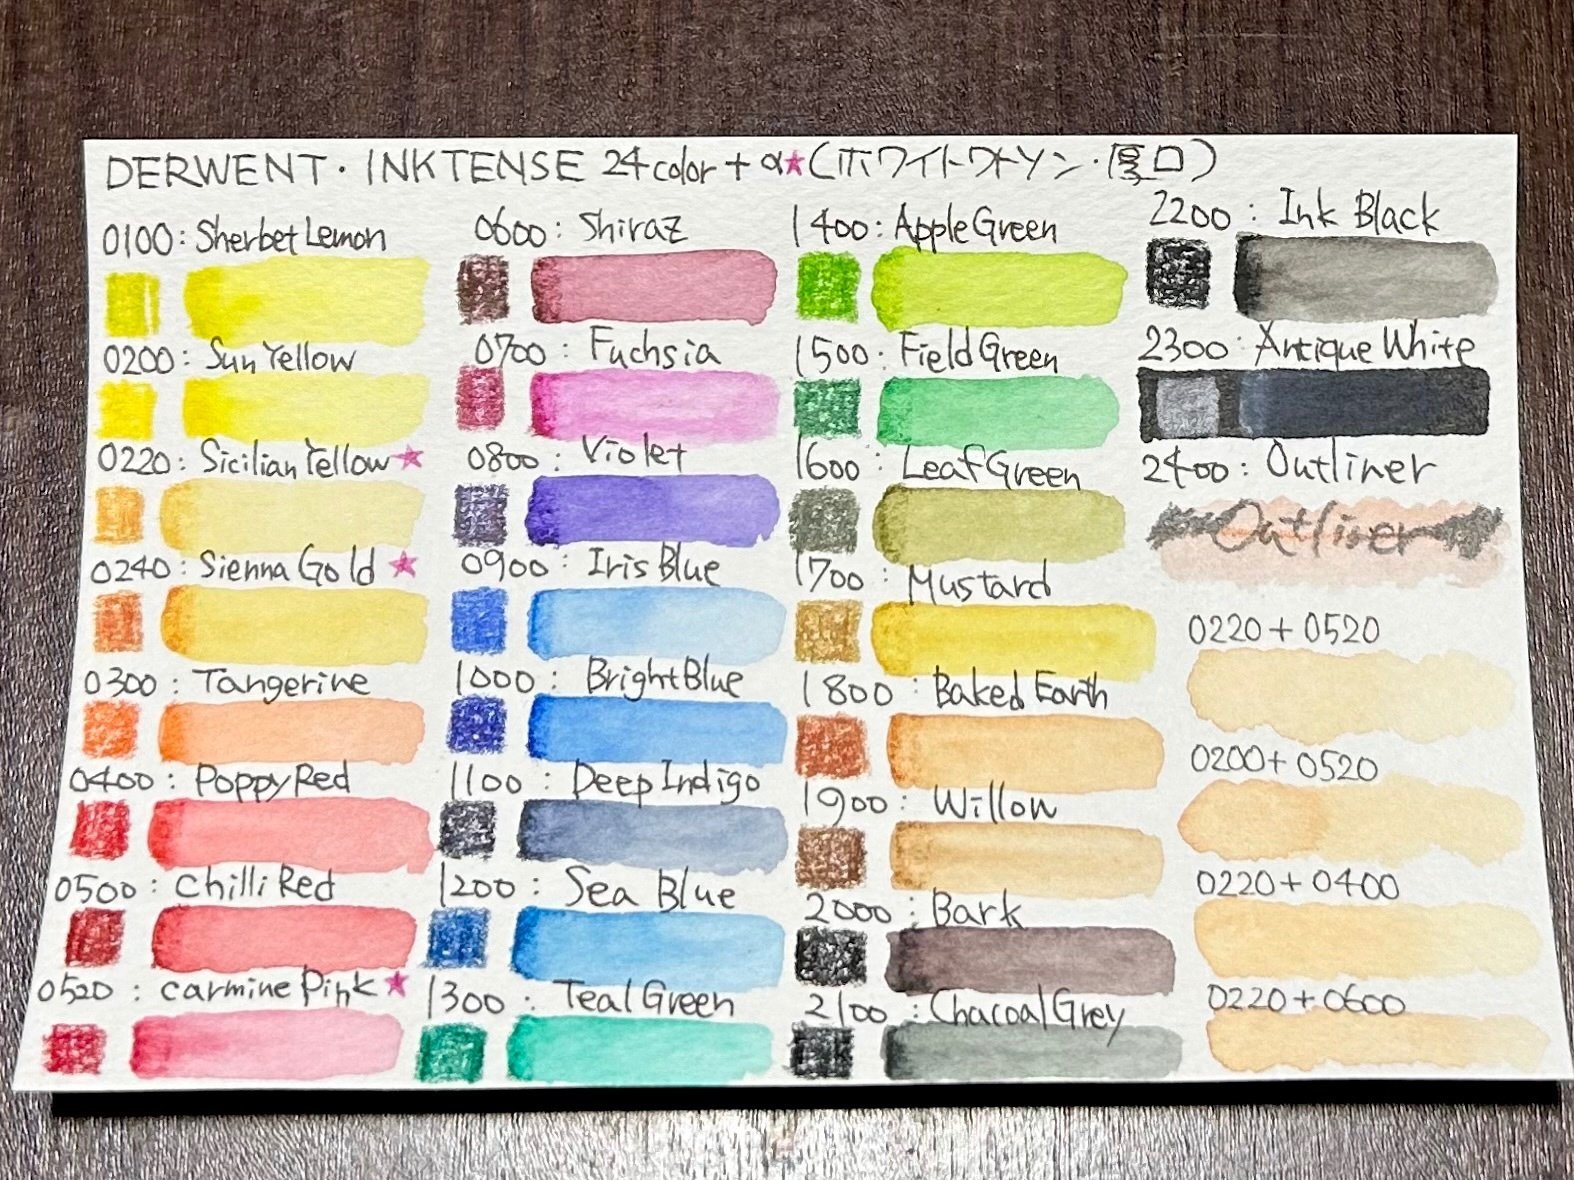 DERWENT・INKTENSE 24color+α★(ホワイトワトソン・厚口)
0100:Sherbet Lemon
0200:Sun Yellow
0220:Sicilian Yellow★
0240:Sienna Gold★
0300:Tangerine
0400:Poppy Red
0500:Chilli Red
0520:carmine Pink★
0600:Shiraz
0700:Fuchsia
0800:Violet
0900:Iris Blue
1000:Bright Blue
1100:Deep Indigo
1200:Sea Blue
1300:Teal Green
1400:Apple Green
1500:Field Green
1600:Leaf Green
1700:Mustard
1800:Baked Earth
1900:Willow
2000:Bark
2100:Chacoal Grey
2200:Ink Black
2300:Antique White
2400:Outliner
Outliner
0220+0520
0200+0520
0220+0400
0220+0600